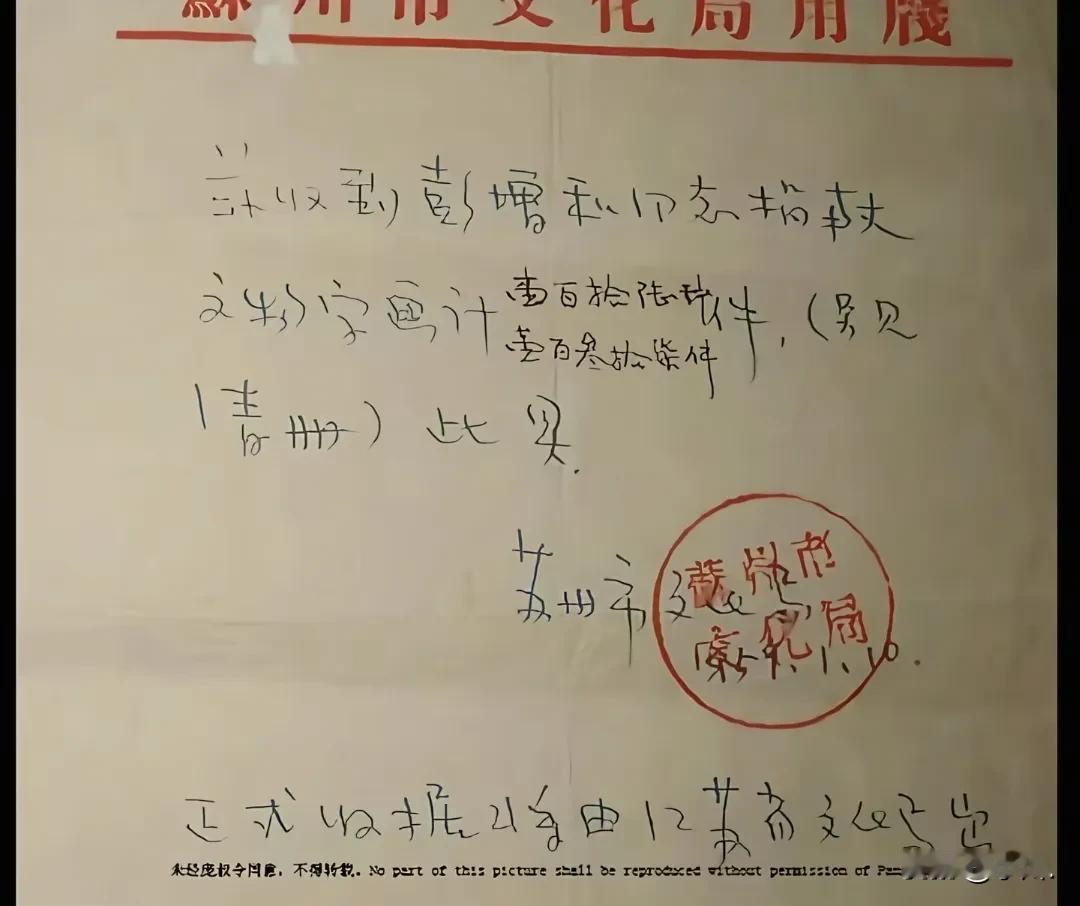 蘇州市文化局用牋
茲收到彭增和同志捐献
文物字画计壹百叁拾柒件,(见
清册)此具.
苏州市文化局
59.1.10.
蘇州市
文化局
正式收据将由江苏省文化局出
同意,不得转载。No part of this picture shall be reproduced without permission of